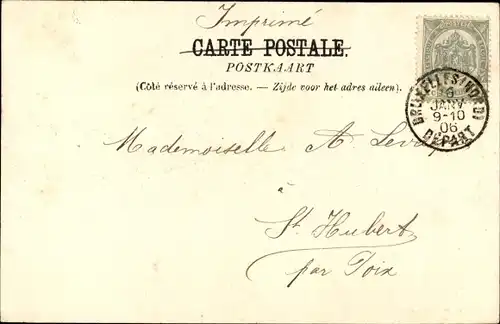 Imprimé
CARTE POSTALE.
POSTKAART
(Côté réservé à l'adresse. — Zijde voor het adres alleen).
BRUXELLES (NORD)
6
JANV
9-10
06
DÉPART
Mademoiselle A.
à
St Hubert
par Poix